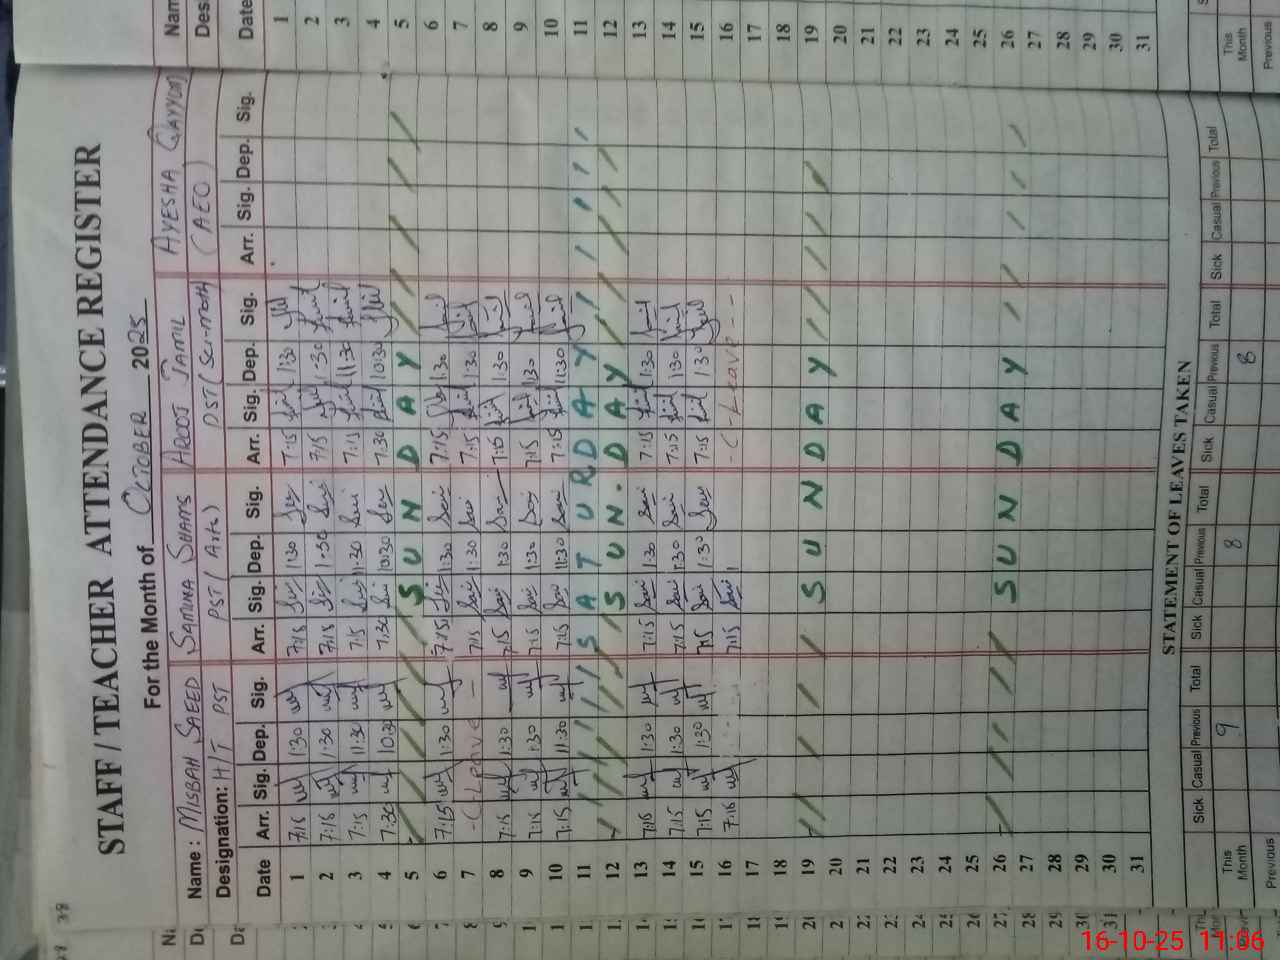 STAFF / TEACHER ATTENDANCE REGISTER
For the Month of OCTOBER 2025
Name: MISBAH SAEED SAMINA SHAMS AROOJ JAMIL AYESHA QAYYUM
Designation: H/T PST PST (Arts) PST (Sci-math) (AEO)
Date Arr. Sig. Dep. Sig. Arr. Sig. Dep. Sig. Arr. Sig. Dep. Sig. Arr. Sig. Dep. Sig.
1 7:15 1:30 7:15 1:30 7:15 1:30
2 7:15 1:30 7:15 1:30 7:15 1:30
3 7:15 11:30 7:15 11:30 7:15 11:30
4 7:30 10:30 7:30 10:30 7:30 10:30
5 SUNDAY
6 7:15 1:30 7:15 1:30 7:15 1:30
7 - (Leave - 7:15 1:30 7:15 1:30
8 7:15 1:30 7:15 1:30 7:15 1:30
9 7:15 1:30 7:15 1:30 7:15 1:30
10 7:15 11:30 7:15 11:30 7:15 11:30
11 SATURDAY
12 SUN.DAY
13 7:15 1:30 7:15 1:30 7:15 1:30
14 7:15 1:30 7:15 1:30 7:15 1:30
15 7:15 1:30 7:15 1:30 7:15 1:30
16 7:15 7:15 - (-Leave--
17
18
19 SUNDAY
20
21
22
23
24
25
26 SUNDAY
27
28
29
30
31
STATEMENT OF LEAVES TAKEN
Sick Casual Previous Total Sick Casual Previous Total Sick Casual Previous Total Sick Casual Previous Total
This Month 9 8 8
Previous
16-10-25 11:06